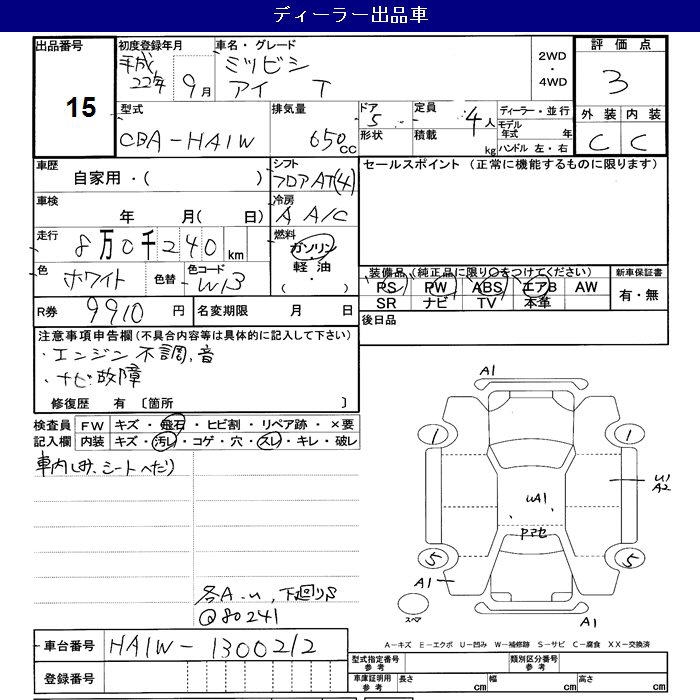 ディーラー出品車
出品番号
15
初度登録年月
平成
22年 9月
車名・グレード
ミツビシ
アイ T
2WD
・
4WD
評価点
3
外装 内装
C C
型式
CBA-HA1W
排気量
650cc
ドア
5
形状
定員
4人
積載
kg
ディーラー・並行
モデル
年式 年
ハンドル 左・右
車歴
自家用・( )
シフト
フロアAT(4)
車検
年 月( 日)
冷房
A A/C
走行
8万0千240km
燃料
ガソリン
・
軽油
( ・ )
色
ホワイト
色替
色コード
W13
R券
9910円
名変期限 月 日
セールスポイント (正常に機能するものに限ります)
装備品(純正品に限り○をつけてください)
PS PW ABS エアB AW
SR ナビ TV 本革
新車保証書
有・無
後日品
注意事項申告欄(不具合内容等は具体的に記入して下さい)
・エンジン不調,音
・ナビ故障
修復歴 有 〔箇所 〕
検査員
記入欄
FW キズ・飛石・ヒビ割・リペア跡・×要
内装 キズ・汚レ・コゲ・穴・スレ・キレ・破レ
車内しみ、シートへたり
各A・u,下廻りS
@80241
A1
1
1
U1
A2
UA1
5
5
A1
スペア
A1
A-キズ E-エクボ U-凹み W-補修跡 S-サビ C-腐食 XX-交換済
車台番号 HA1W-1300212
登録番号
型式指定番号
参考
類別区分番号
参考
車庫証明用
参考
長さ cm
幅 cm
高さ cm